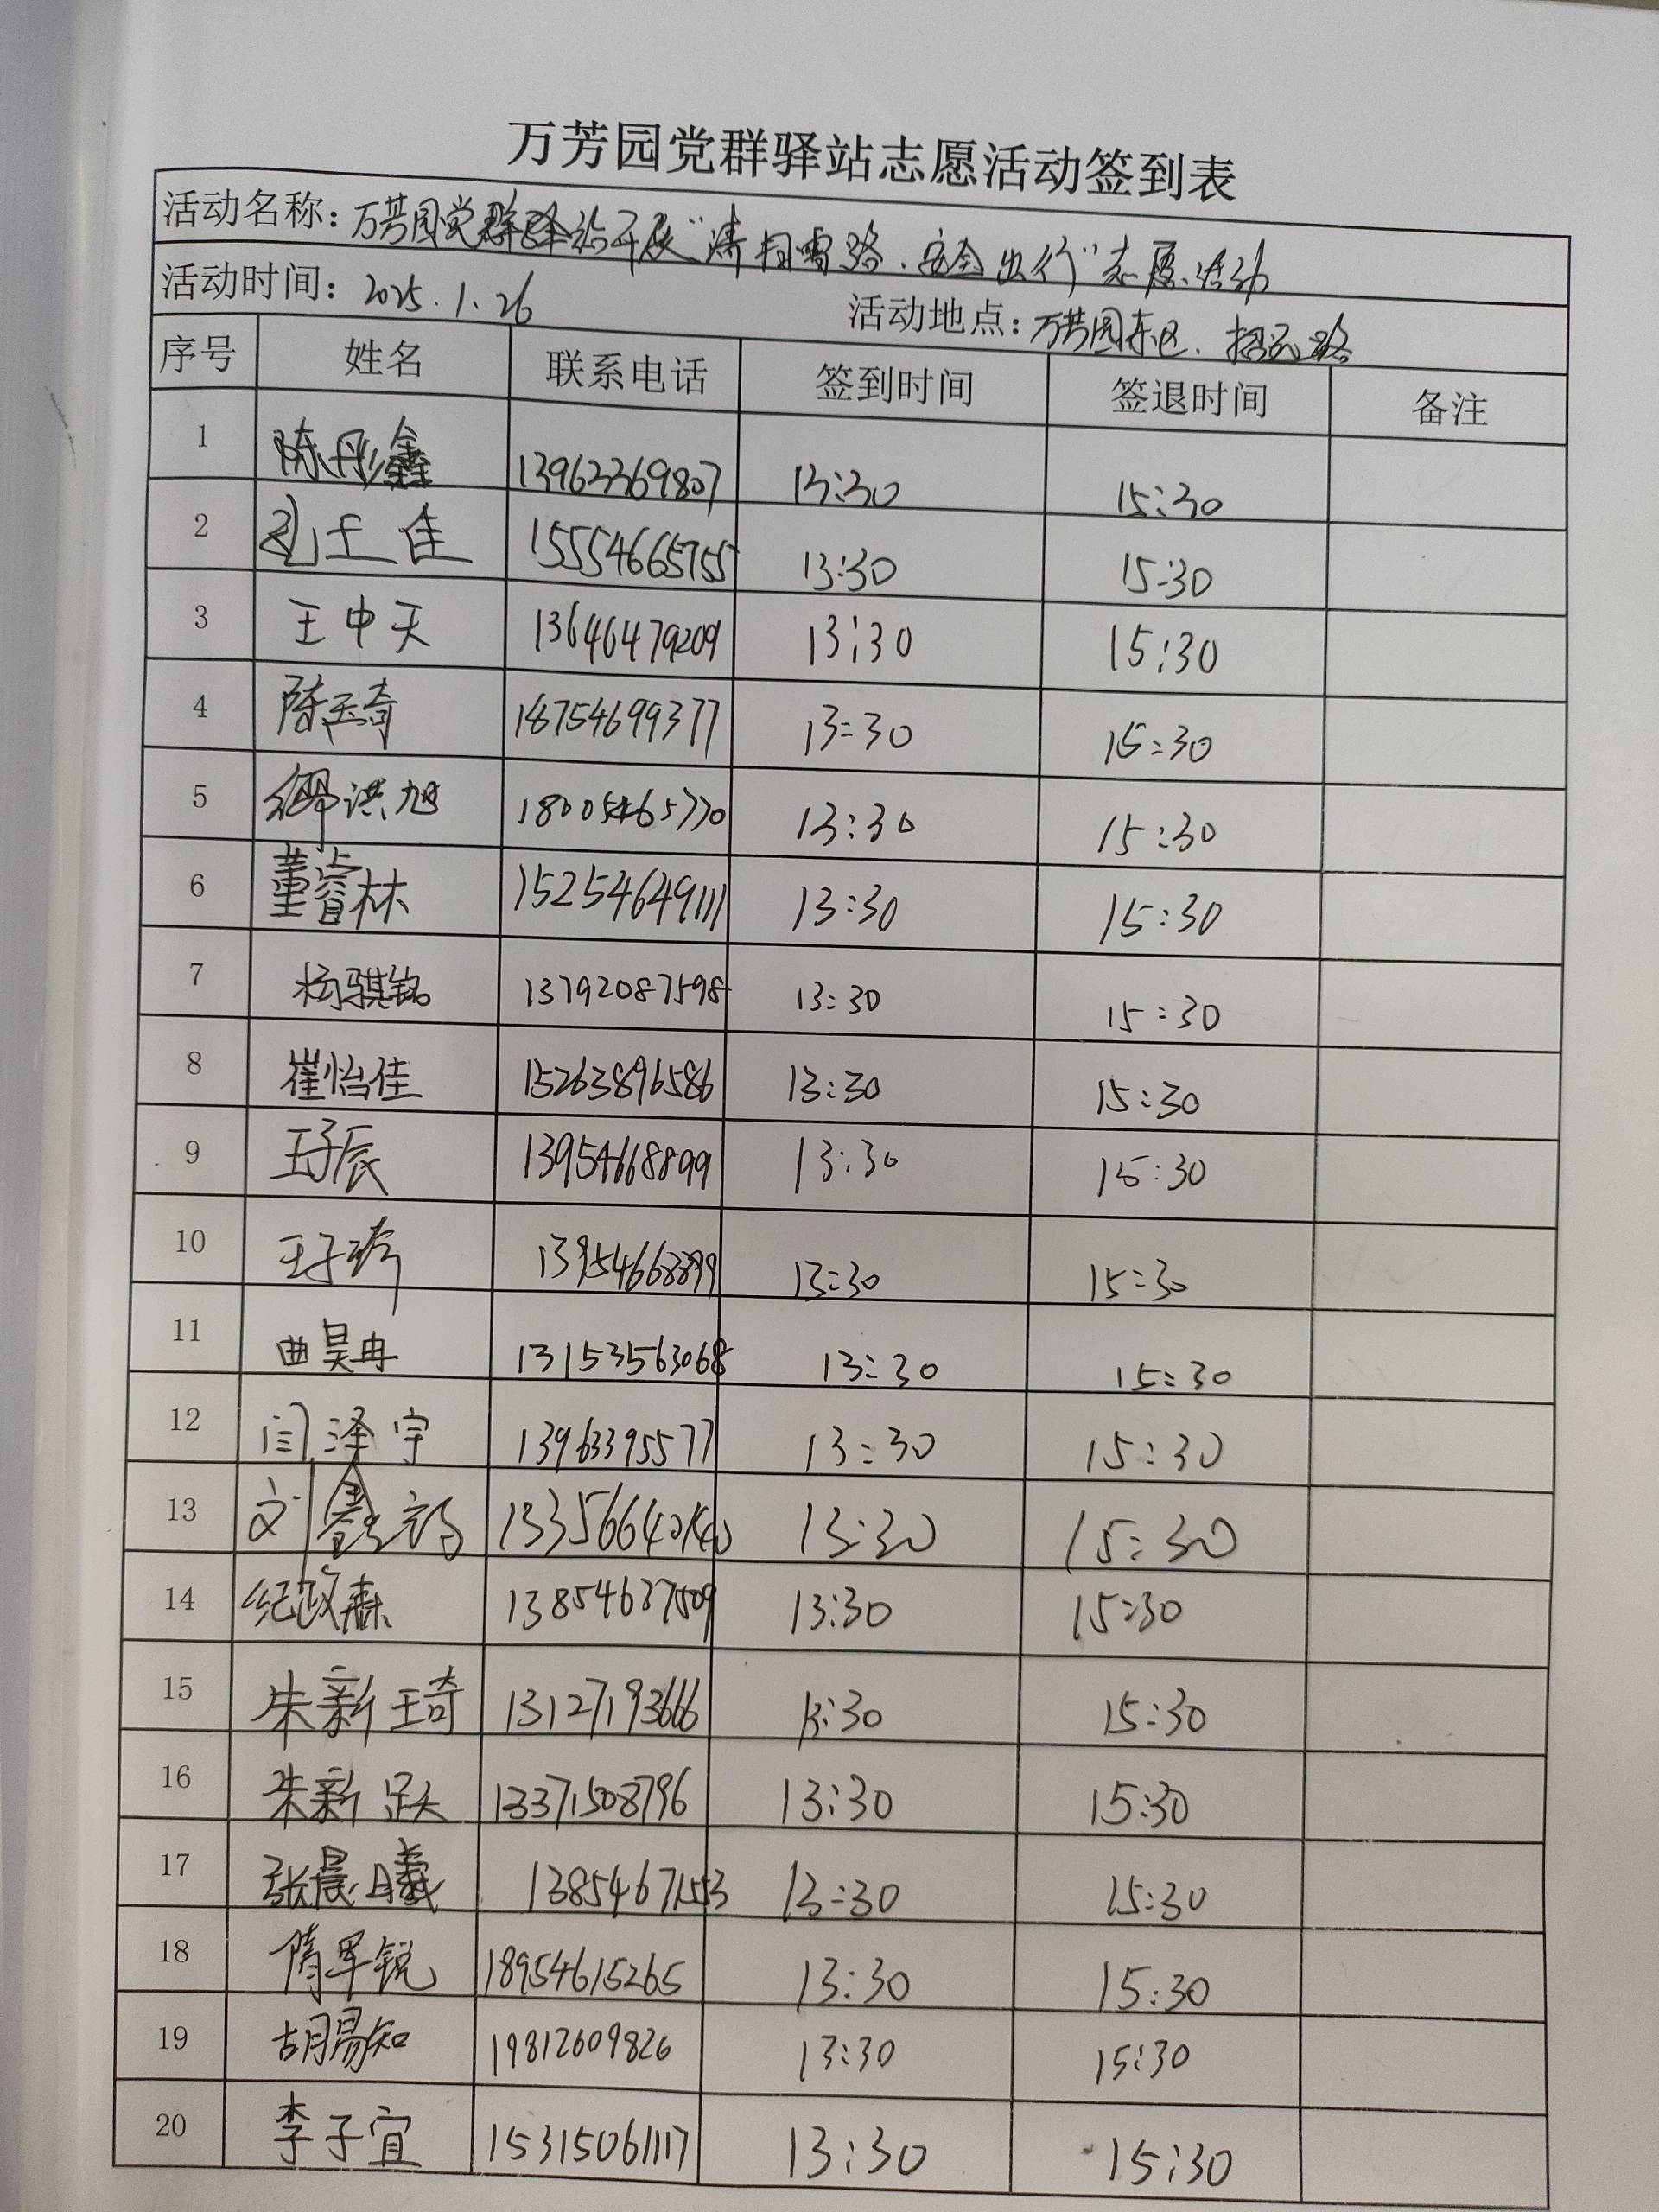 万芳园党群驿站志愿活动签到表
活动名称：万芳园党群驿站开展“清扫雪路、安全出行”志愿活动
活动时间：2025.1.26 活动地点：万芳园东区、招远路
序号 姓名 联系电话 签到时间 签退时间 备注
1 陈彤鑫 13963369807 13:30 15:30
2 15554665755 13:30 15:30
3 王中天 13646479209 13:30 15:30
4 陈玉奇 18754699377 13:30 15:30
5 缪洪旭 18005465770 13:30 15:30
6 董睿林 15254649111 13:30 15:30
7 杨骐铭 13792087598 13:30 15:30
8 崔怡佳 15263896586 13:30 15:30
9 王子辰 13954668899 13:30 15:30
10 王子 13954668899 13:30 15:30
11 曲昊冉 13153563068 13:30 15:30
12 闫泽宇 13963395577 13:30 15:30
13 刘鑫 13356640140 13:30 15:30
14 纪政森 13854637509 13:30 15:30
15 朱新琦 13127193666 13:30 15:30
16 朱新跃 13371508796 13:30 15:30
17 张晨曦 13854671553 13:30 15:30
18 隋军锐 18954615265 13:30 15:30
19 胡易知 19812609826 13:30 15:30
20 李子宜 15315061117 13:30 15:30